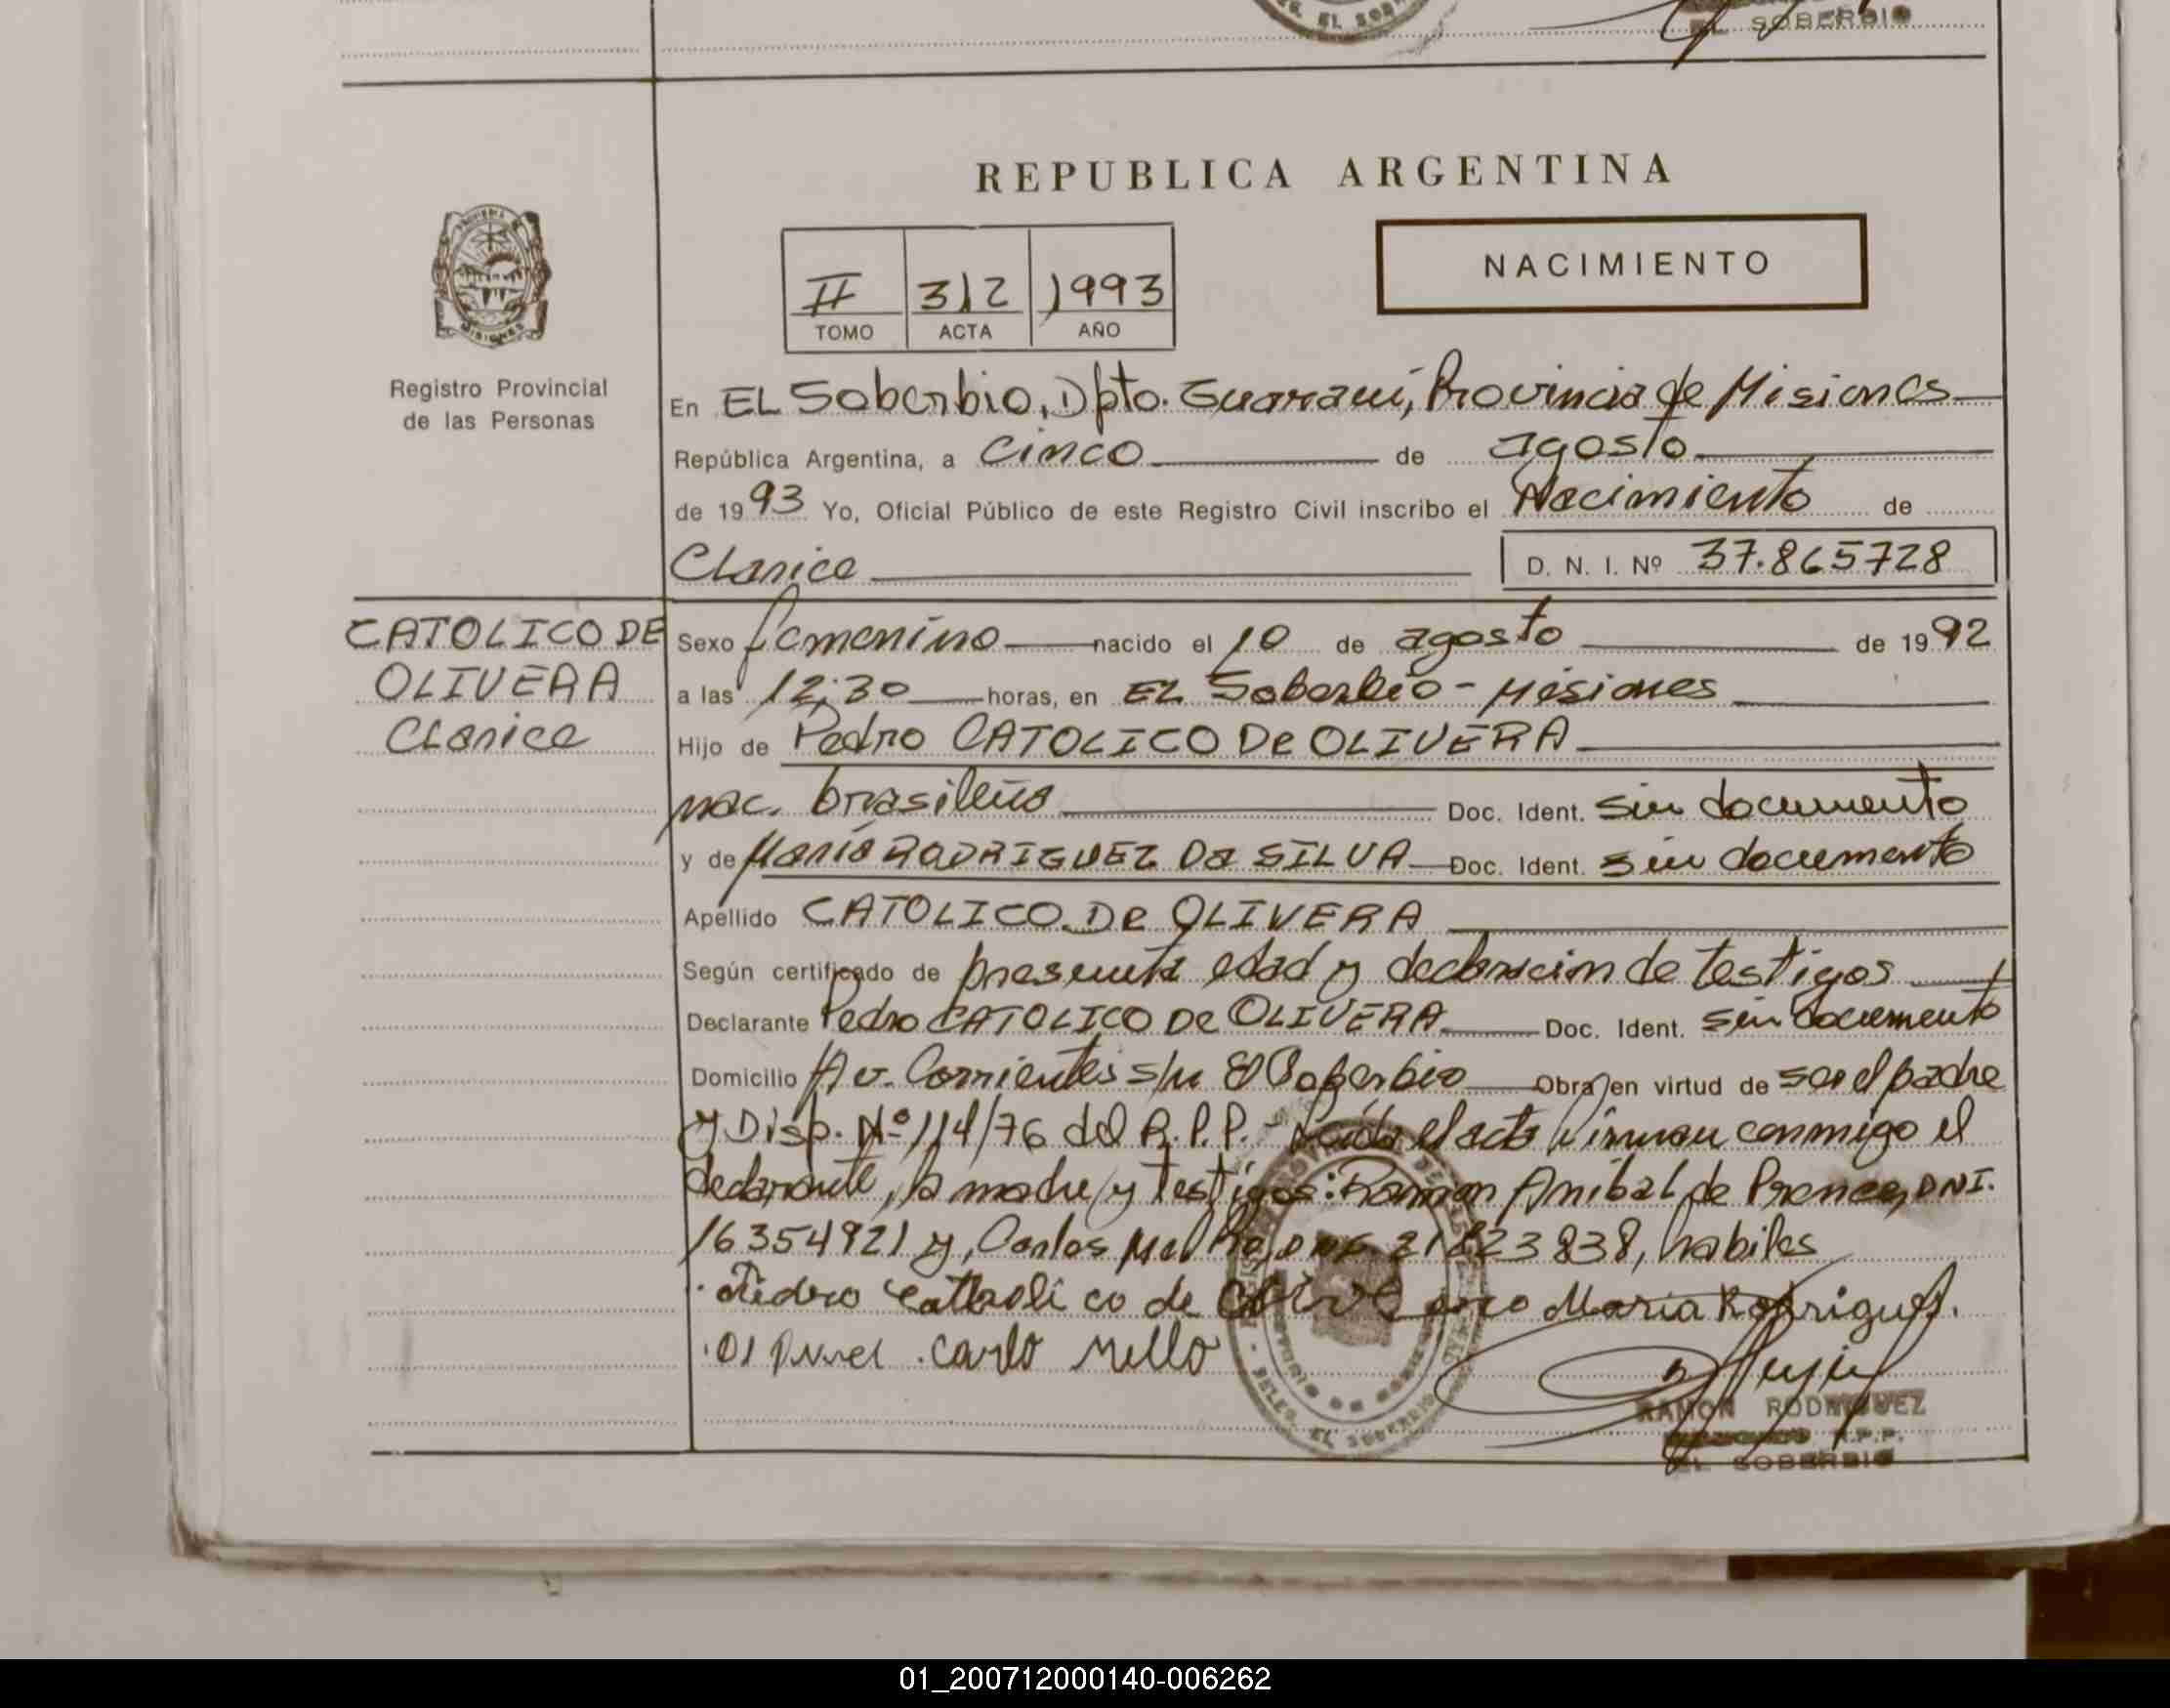 EL SOBERBIO
REPUBLICA ARGENTINA
NACIMIENTO
II 312 1993
TOMO ACTA AÑO
MISIONES
Registro Provincial
de las Personas
En EL Soberbio, Dpto. Guaraní, Provincia de Misiones
República Argentina, a cinco de agosto
de 1993 Yo, Oficial Público de este Registro Civil inscribo el Nacimiento de
Clarice D. N. I. Nº 37.865728
CATOLICO DE
OLIVERA
Clarice
Sexo femenino nacido el 10 de agosto de 1992
a las 12:30 horas, en EL Soberbio - Misiones
Hijo de Pedro CATOLICO De OLIVERA
nac. brasileño Doc. Ident. sin documento
y de María RODRIGUEZ Da SILVA Doc. Ident. sin documento
Apellido CATOLICO De OLIVERA
Según certificado de presunta edad y declaracion de testigos
Declarante Pedro CATOLICO De OLIVERA Doc. Ident. sin documento
Domicilio Av. Corrientes s/n El Soberbio Obra en virtud de ser el padre
y Disp. Nº 114/76 del R.P.P. - Leída el acta firman conmigo el
declarante, la madre y testigos: Ramon Anibal de DNI.
16354921 y, Carlos DNI 21823838, habiles
Pedro de Maria Rodriguez.
carlo Mello
RAMON RODRIGUEZ
R.P.P.
EL SOBERBIO
01_200712000140-006262